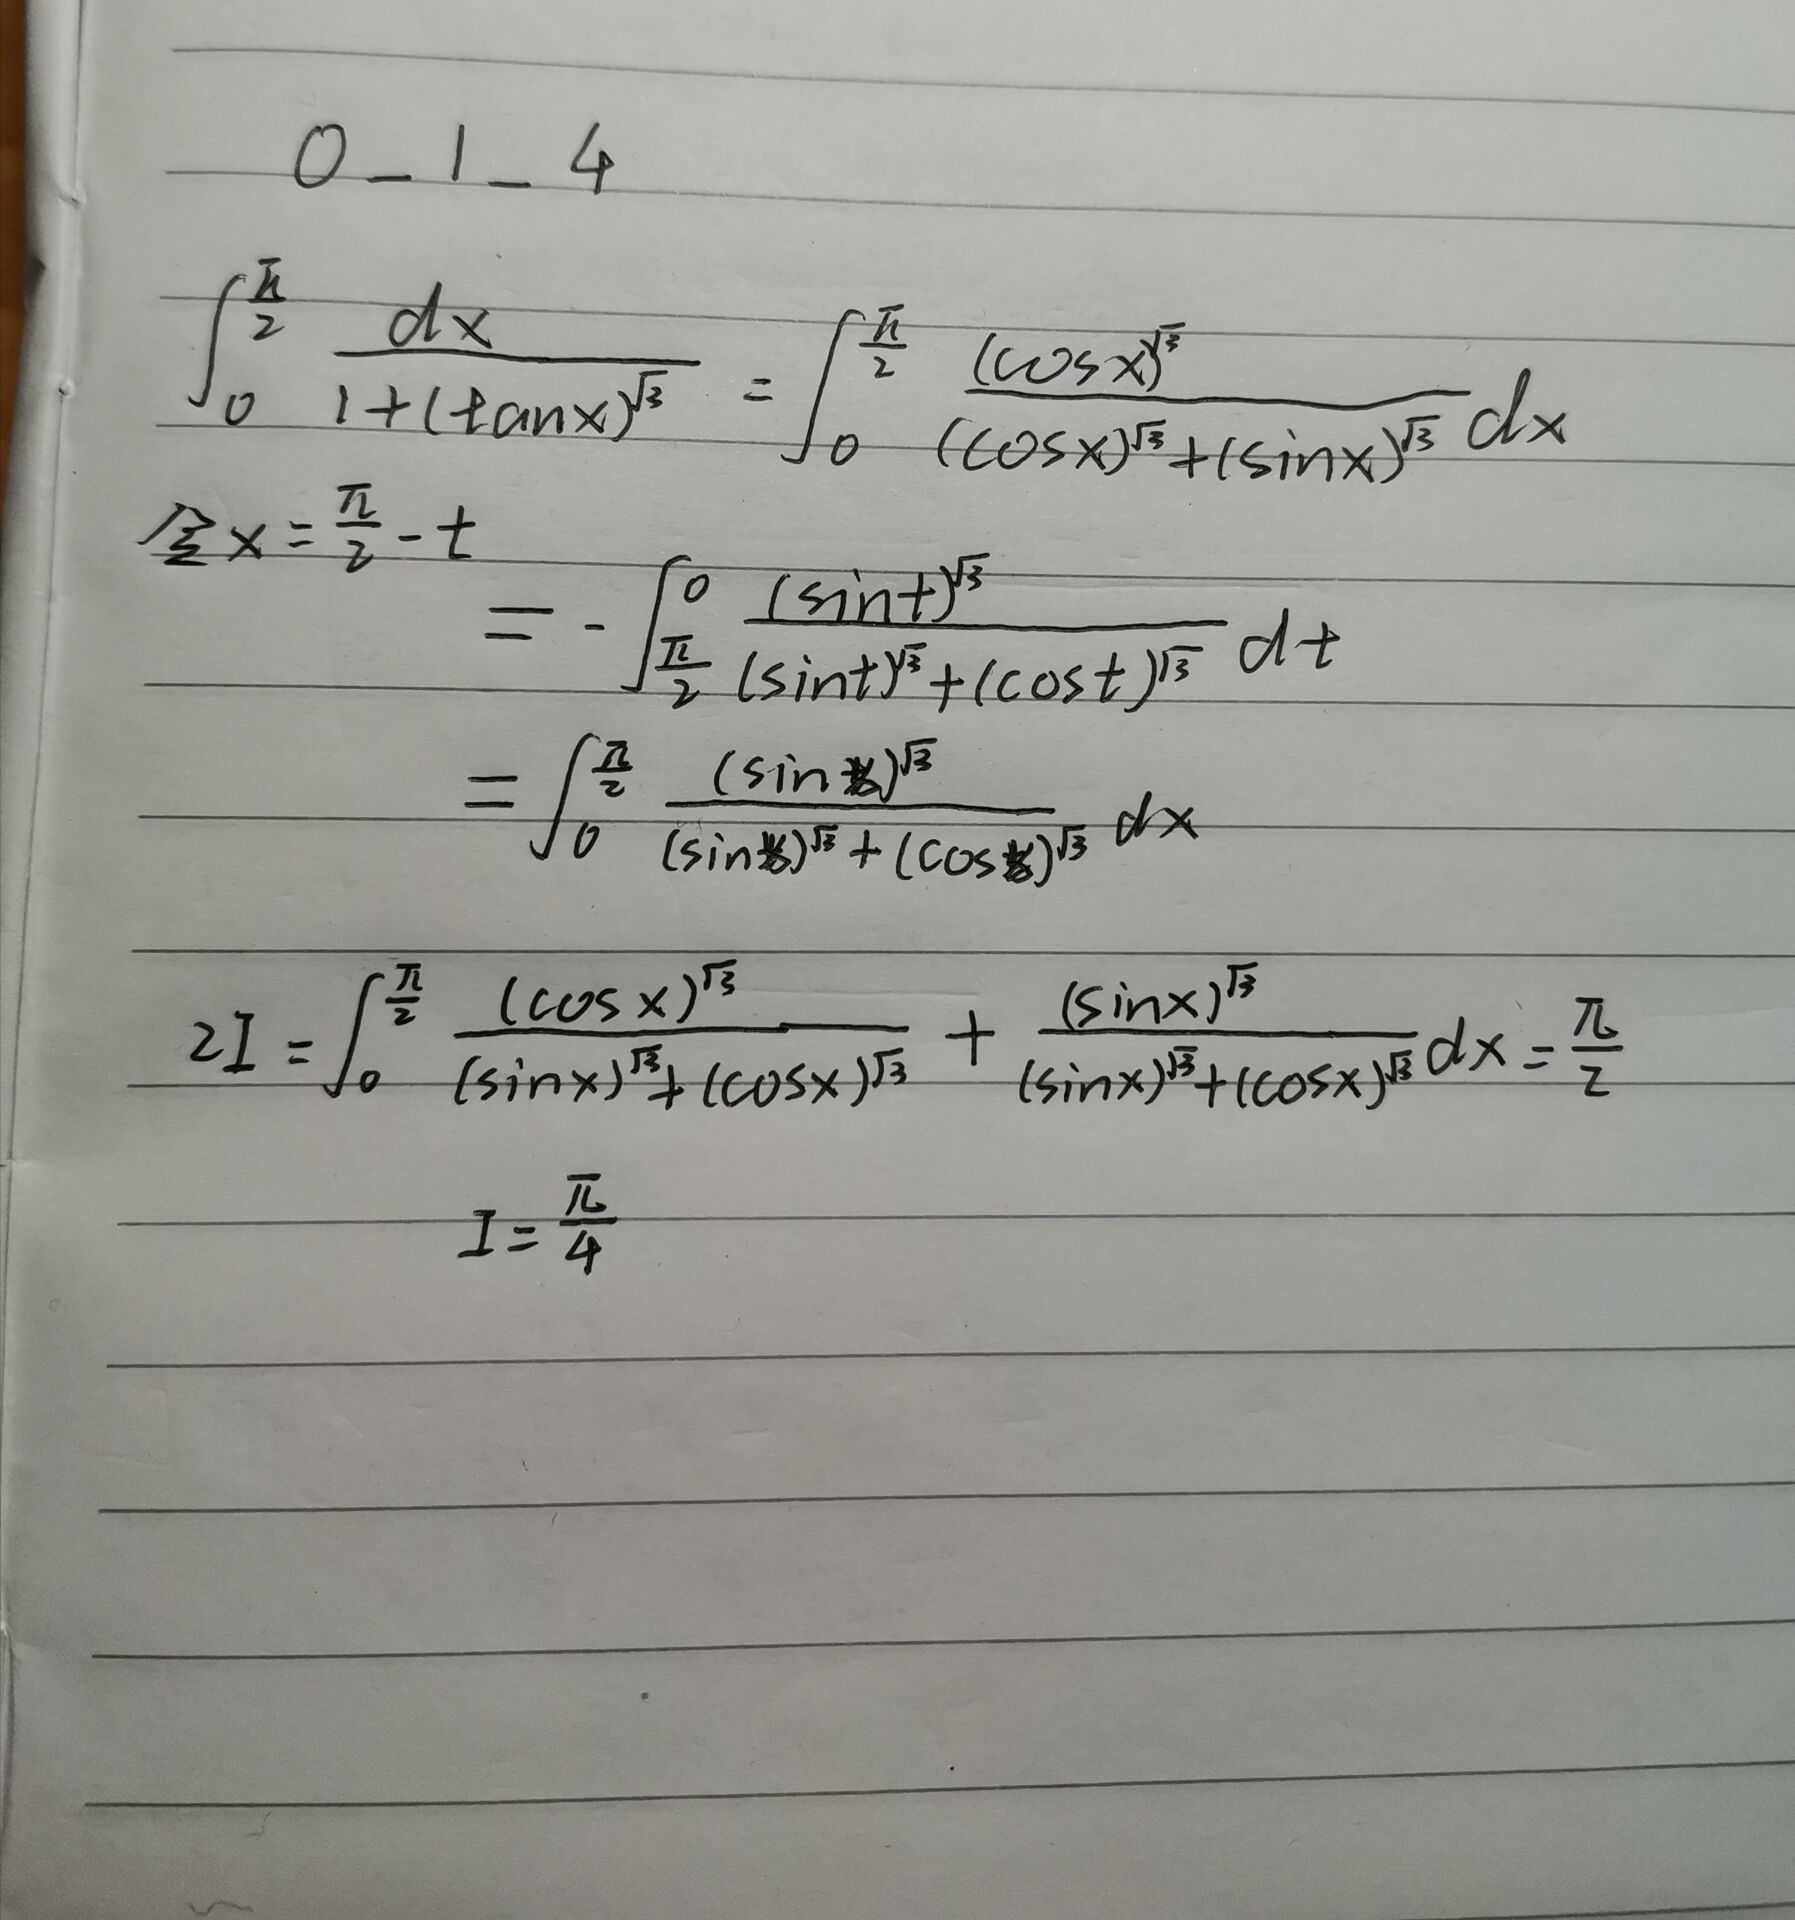 0_1_4
∫_0^{π/2} dx/(1+(tanx)^{√3}) = ∫_0^{π/2} (cosx)^{√3}/((cosx)^{√3}+(sinx)^{√3}) dx
令x=π/2-t
= -∫_{π/2}^0 (sint)^{√3}/((sint)^{√3}+(cost)^{√3}) dt
= ∫_0^{π/2} (sinx)^{√3}/((sinx)^{√3}+(cosx)^{√3}) dx
2I = ∫_0^{π/2} (cosx)^{√3}/((sinx)^{√3}+(cosx)^{√3}) + (sinx)^{√3}/((sinx)^{√3}+(cosx)^{√3}) dx = π/2
I = π/4